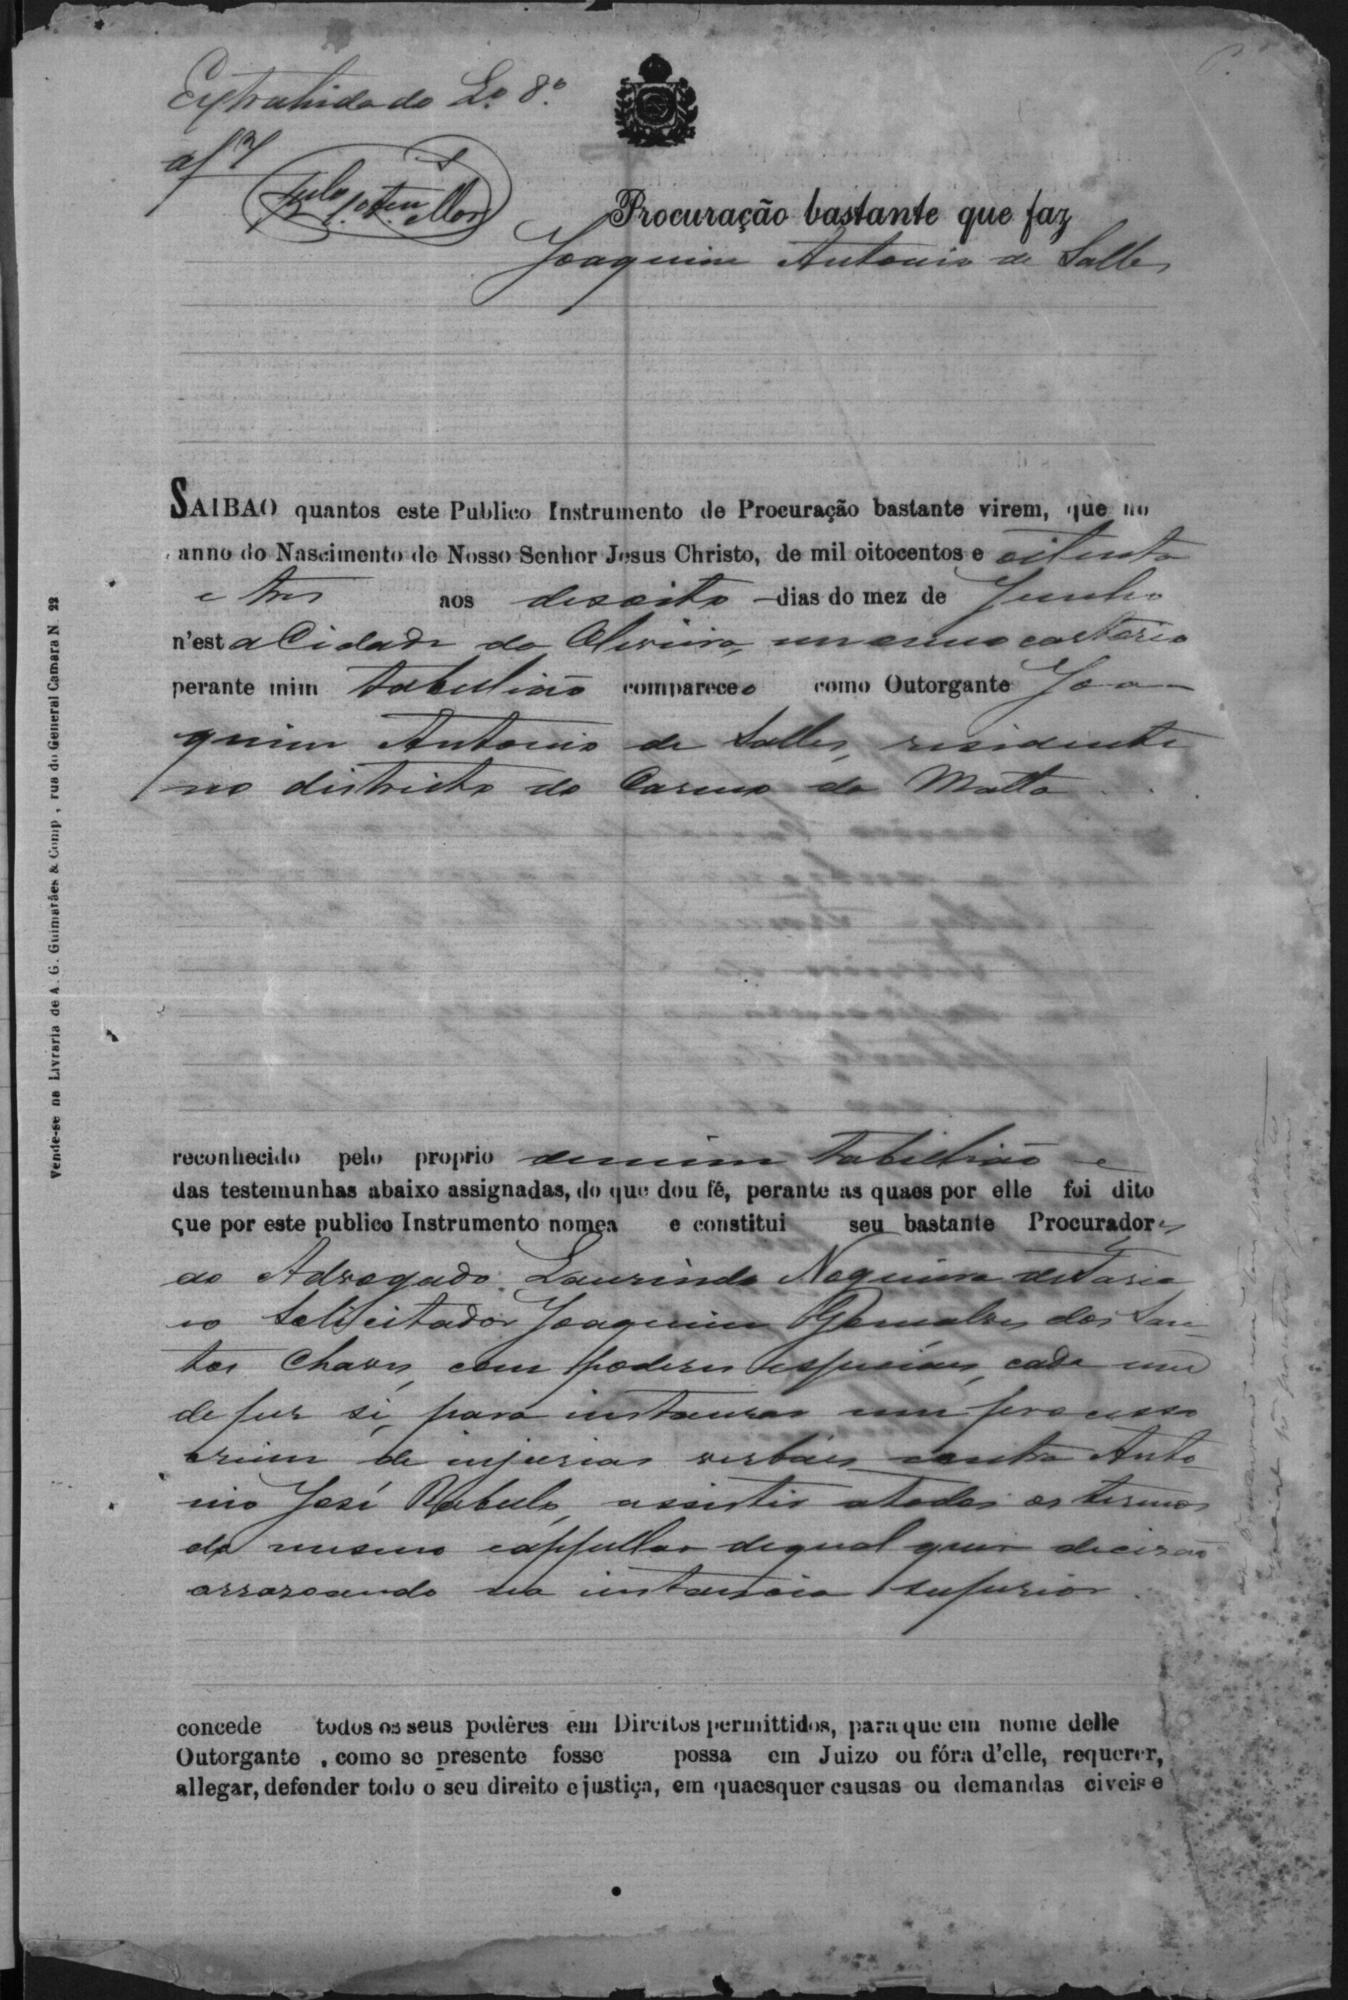 Extrahida do L.º 8º
af
Procuração bastante que faz
Joaquim Antonio de Salles
SAIBAO quantos este Publico Instrumento de Procuração bastante virem, que no
anno do Nascimento de Nosso Senhor Jesus Christo, de mil oitocentos e oitenta
e tres aos desoito dias do mez de Junho
n'est a Cidade da Oliveira, em meu cartorio
perante mim tabellião compareceo como Outorgante Joa-
quim Antonio de Salles, residente
no districto do Carmo da Matta
reconhecido pelo proprio de mim tabellião e
das testemunhas abaixo assignadas, do que dou fé, perante as quaes por elle foi dito
que por este publico Instrumento nomea e constitui seu bastante Procurador es
ao Advogado Laurindo Nogueira de Faria
e o Solicitador Joaquim Gonsalves dos San-
tos Chaves, com poderes especiáes, cada um
de per si, para instaurar um processo
crime de injurias verbáes contra Anto-
nio José Rabello, assistir a todos os termos
do mesmo e appellar de qual quer decisão
arrasoando na instancia superior.
concede todos os seus podêres em Direitos permittidos, para que em nome delle
Outorgante, como se presente fosse possa em Juizo ou fóra d'elle, requerer,
allegar, defender todo o seu direito e justiça, em quaesquer causas ou demandas civeis e
Vende-se na Livraria de A. G. Guimarães & Comp, rua do General Camara N 22